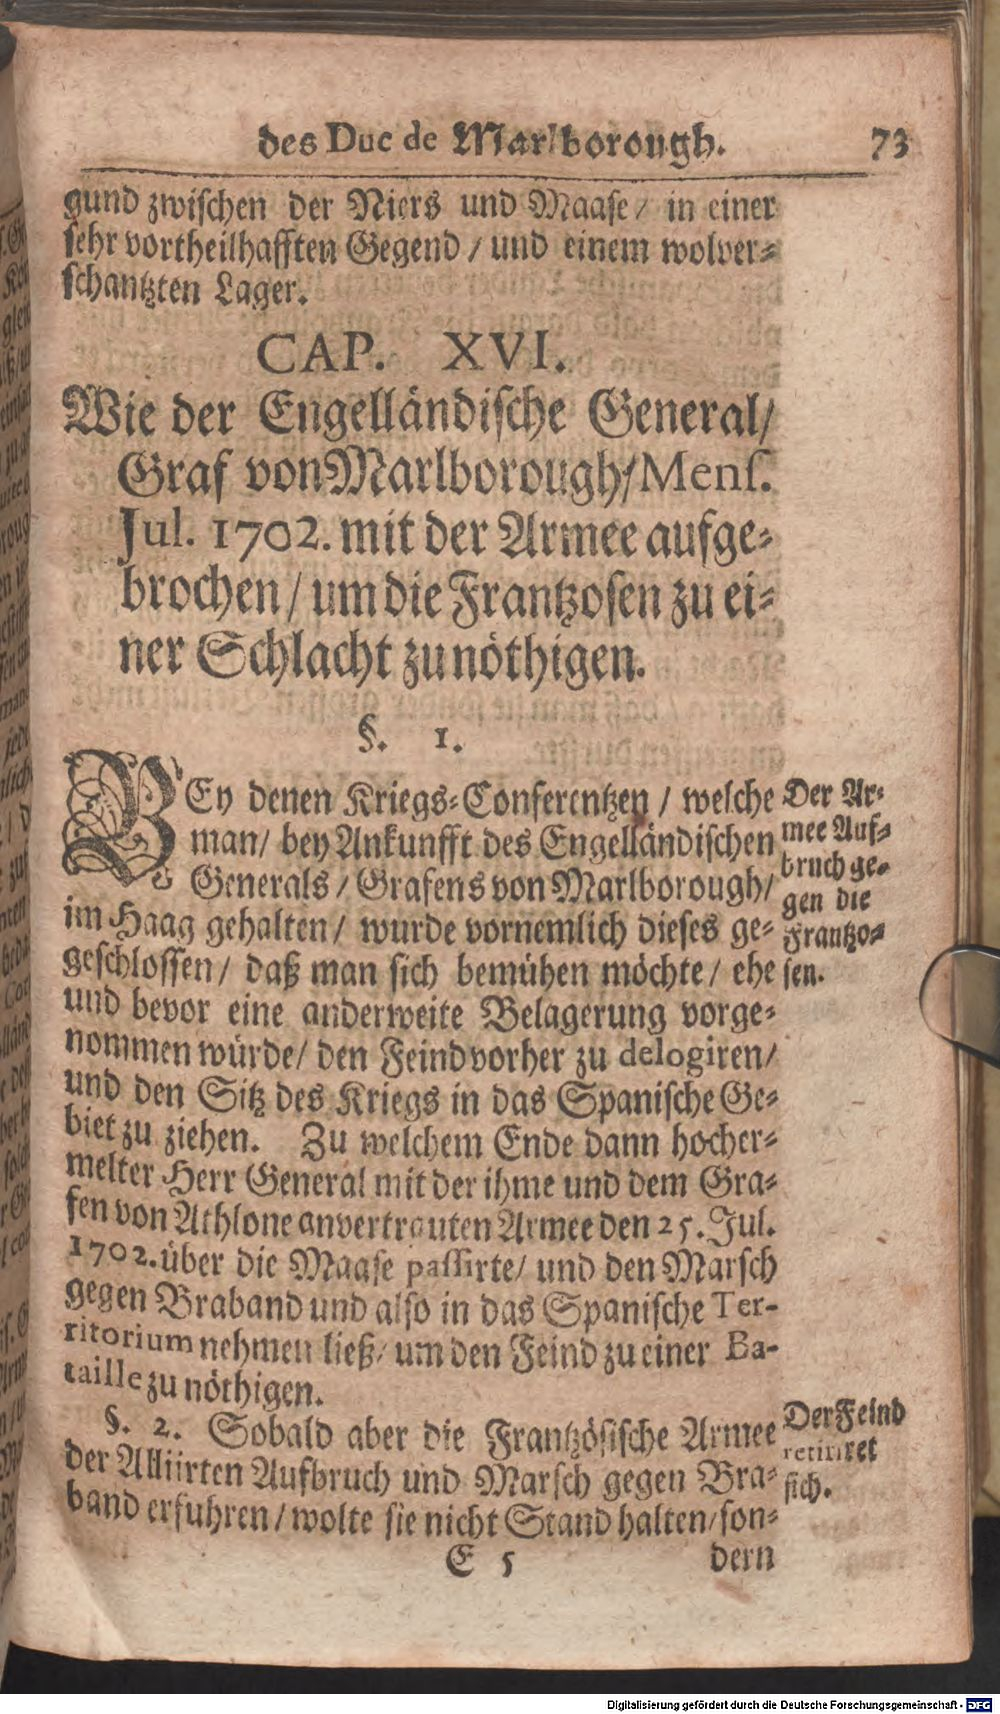 des Duc de Marlborough. 73
gund zwischen der Niers und Maase/ in einer
sehr vortheilhafften Gegend / und einem wolver-
schantzten Lager.
CAP. XVI.
Wie der Engelländische General/
Graf von Marlborough/ Mens.
Jul. 1702. mit der Armee aufge-
brochen / um die Frantzosen zu ei-
ner Schlacht zu nöthigen.
§. 1.
BEy denen Kriegs-Conferentzen / welche
man/ bey Ankunfft des Engelländischen
Generals / Grafens von Marlborough/
im Haag gehalten/ wurde vornemlich dieses ge-
geschlossen/ daß man sich bemühen möchte/ ehe
und bevor eine anderweite Belagerung vorge-
nommen würde/ den Feind vorher zu delogiren/
und den Sitz des Kriegs in das Spanische Ge-
biet zu ziehen. Zu welchem Ende dann hocher-
melter Herr General mit der ihme und dem Gra-
fen von Athlone anvertrauten Armee den 25. Jul.
1702. über die Maase passirte/ und den Marsch
gegen Braband und also in das Spanische Ter-
ritorium nehmen ließ/ um den Feind zu einer Ba-
taille zu nöthigen.
Der Ar-
mee Auf-
bruch ge-
gen die
Frantzo-
sen.
§. 2. Sobald aber die Frantzösische Armee
der Alliirten Aufbruch und Marsch gegen Bra-
band erfuhren / wolte sie nicht Stand halten/ son-
Der Feind
retiriret
sich.
E 5 dern
Digitalisierung gefördert durch die Deutsche Forschungsgemeinschaft - DFG